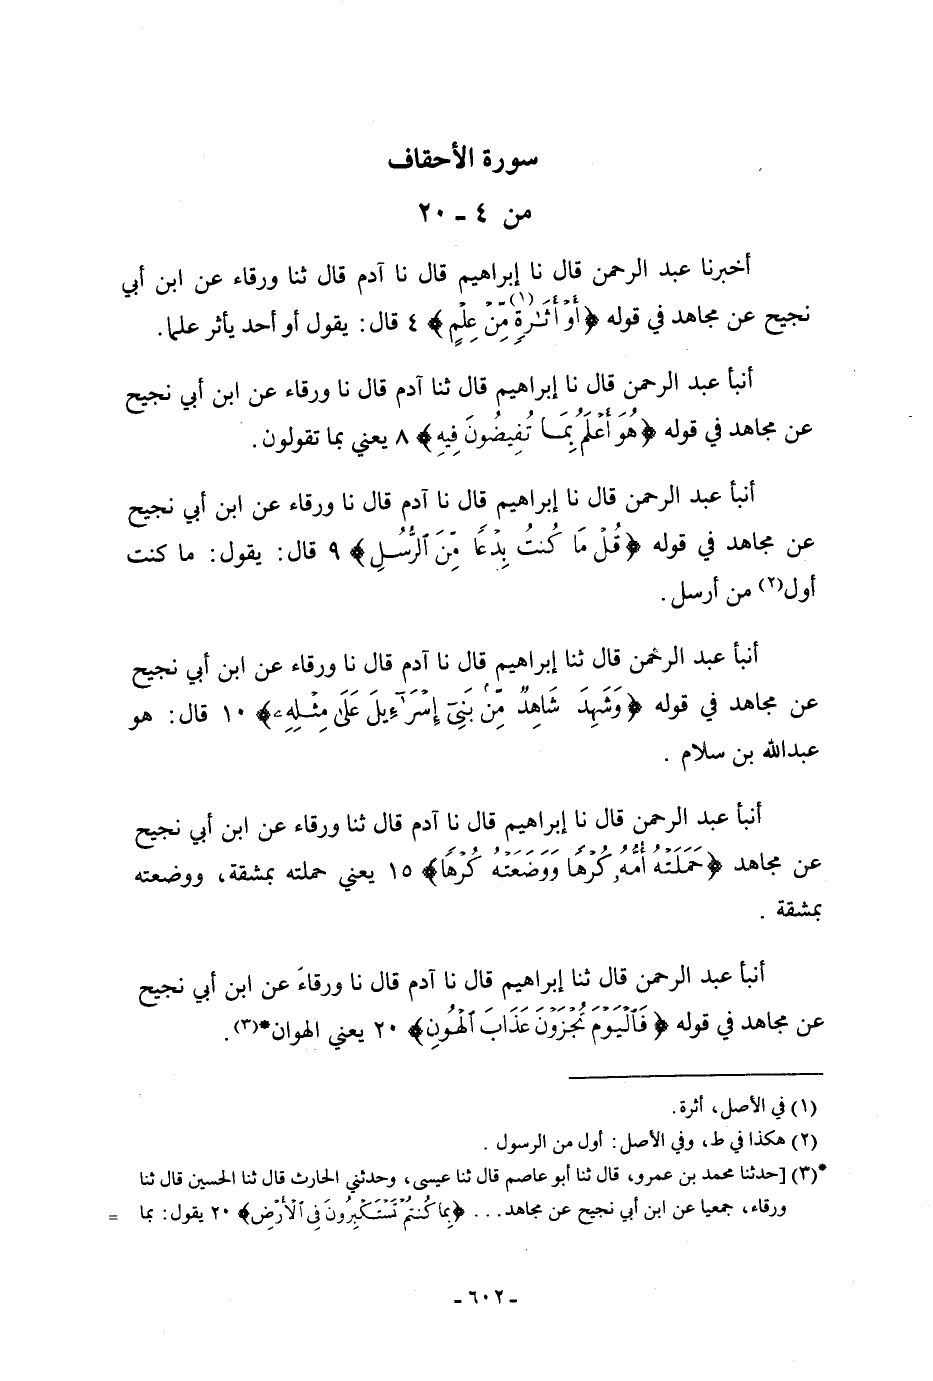 سورة الأحقاف
من ٤ - ٢٠
أخبرنا عبد الرحمن قال نا إبراهيم قال نا آدم قال ثنا ورقاء عن ابن أبي
نجيح عن مجاهد في قوله ﴿أَوْ أَثَٰرَةٍ(١) مِّنْ عِلْمٍ﴾ ٤ قال: يقول أو أحد يأثر علما.
أنبأ عبد الرحمن قال نا إبراهيم قال ثنا آدم قال نا ورقاء عن ابن أبي نجيح
عن مجاهد في قوله ﴿هُوَ أَعْلَمُ بِمَا تُفِيضُونَ فِيهِ﴾ ٨ يعني بما تقولون.
أنبأ عبد الرحمن قال نا إبراهيم قال نا آدم قال نا ورقاء عن ابن أبي نجيح
عن مجاهد في قوله ﴿قُلْ مَا كُنتُ بِدْعًا مِّنَ ٱلرُّسُلِ﴾ ٩ قال: يقول: ما كنت
أول(٢) من أرسل.
أنبأ عبد الرحمن قال ثنا إبراهيم قال نا آدم قال نا ورقاء عن ابن أبي نجيح
عن مجاهد في قوله ﴿وَشَهِدَ شَاهِدٌ مِّنۢ بَنِىٓ إِسْرَٰٓءِيلَ عَلَىٰ مِثْلِهِۦ﴾ ١٠ قال: هو
عبدالله بن سلام .
أنبأ عبد الرحمن قال نا إبراهيم قال نا آدم قال ثنا ورقاء عن ابن أبي نجيح
عن مجاهد ﴿حَمَلَتْهُ أُمُّهُۥ كُرْهًا وَوَضَعَتْهُ كُرْهًا﴾ ١٥ يعني حملته بمشقة، ووضعته
بمشقة .
أنبأ عبد الرحمن قال ثنا إبراهيم قال نا آدم قال نا ورقاءَ عن ابن أبي نجيح
عن مجاهد في قوله ﴿فَٱلْيَوْمَ تُجْزَوْنَ عَذَابَ ٱلْهُونِ﴾ ٢٠ يعني الهوان*(٣).
(١) في الأصل، أثرة.
(٢) هكذا في ط، وفي الأصل: أول من الرسول .
*(٣) [حدثنا محمد بن عمرو، قال ثنا أبو عاصم قال ثنا عيسى، وحدثني الحارث قال ثنا الحسين قال ثنا
ورقاء، جمعيا عن ابن أبي نجيح عن مجاهد... ﴿بِمَا كُنتُمْ تَسْتَكْبِرُونَ فِى ٱلْأَرْضِ﴾ ٢٠ يقول: بما =
- ٦٠٢ -